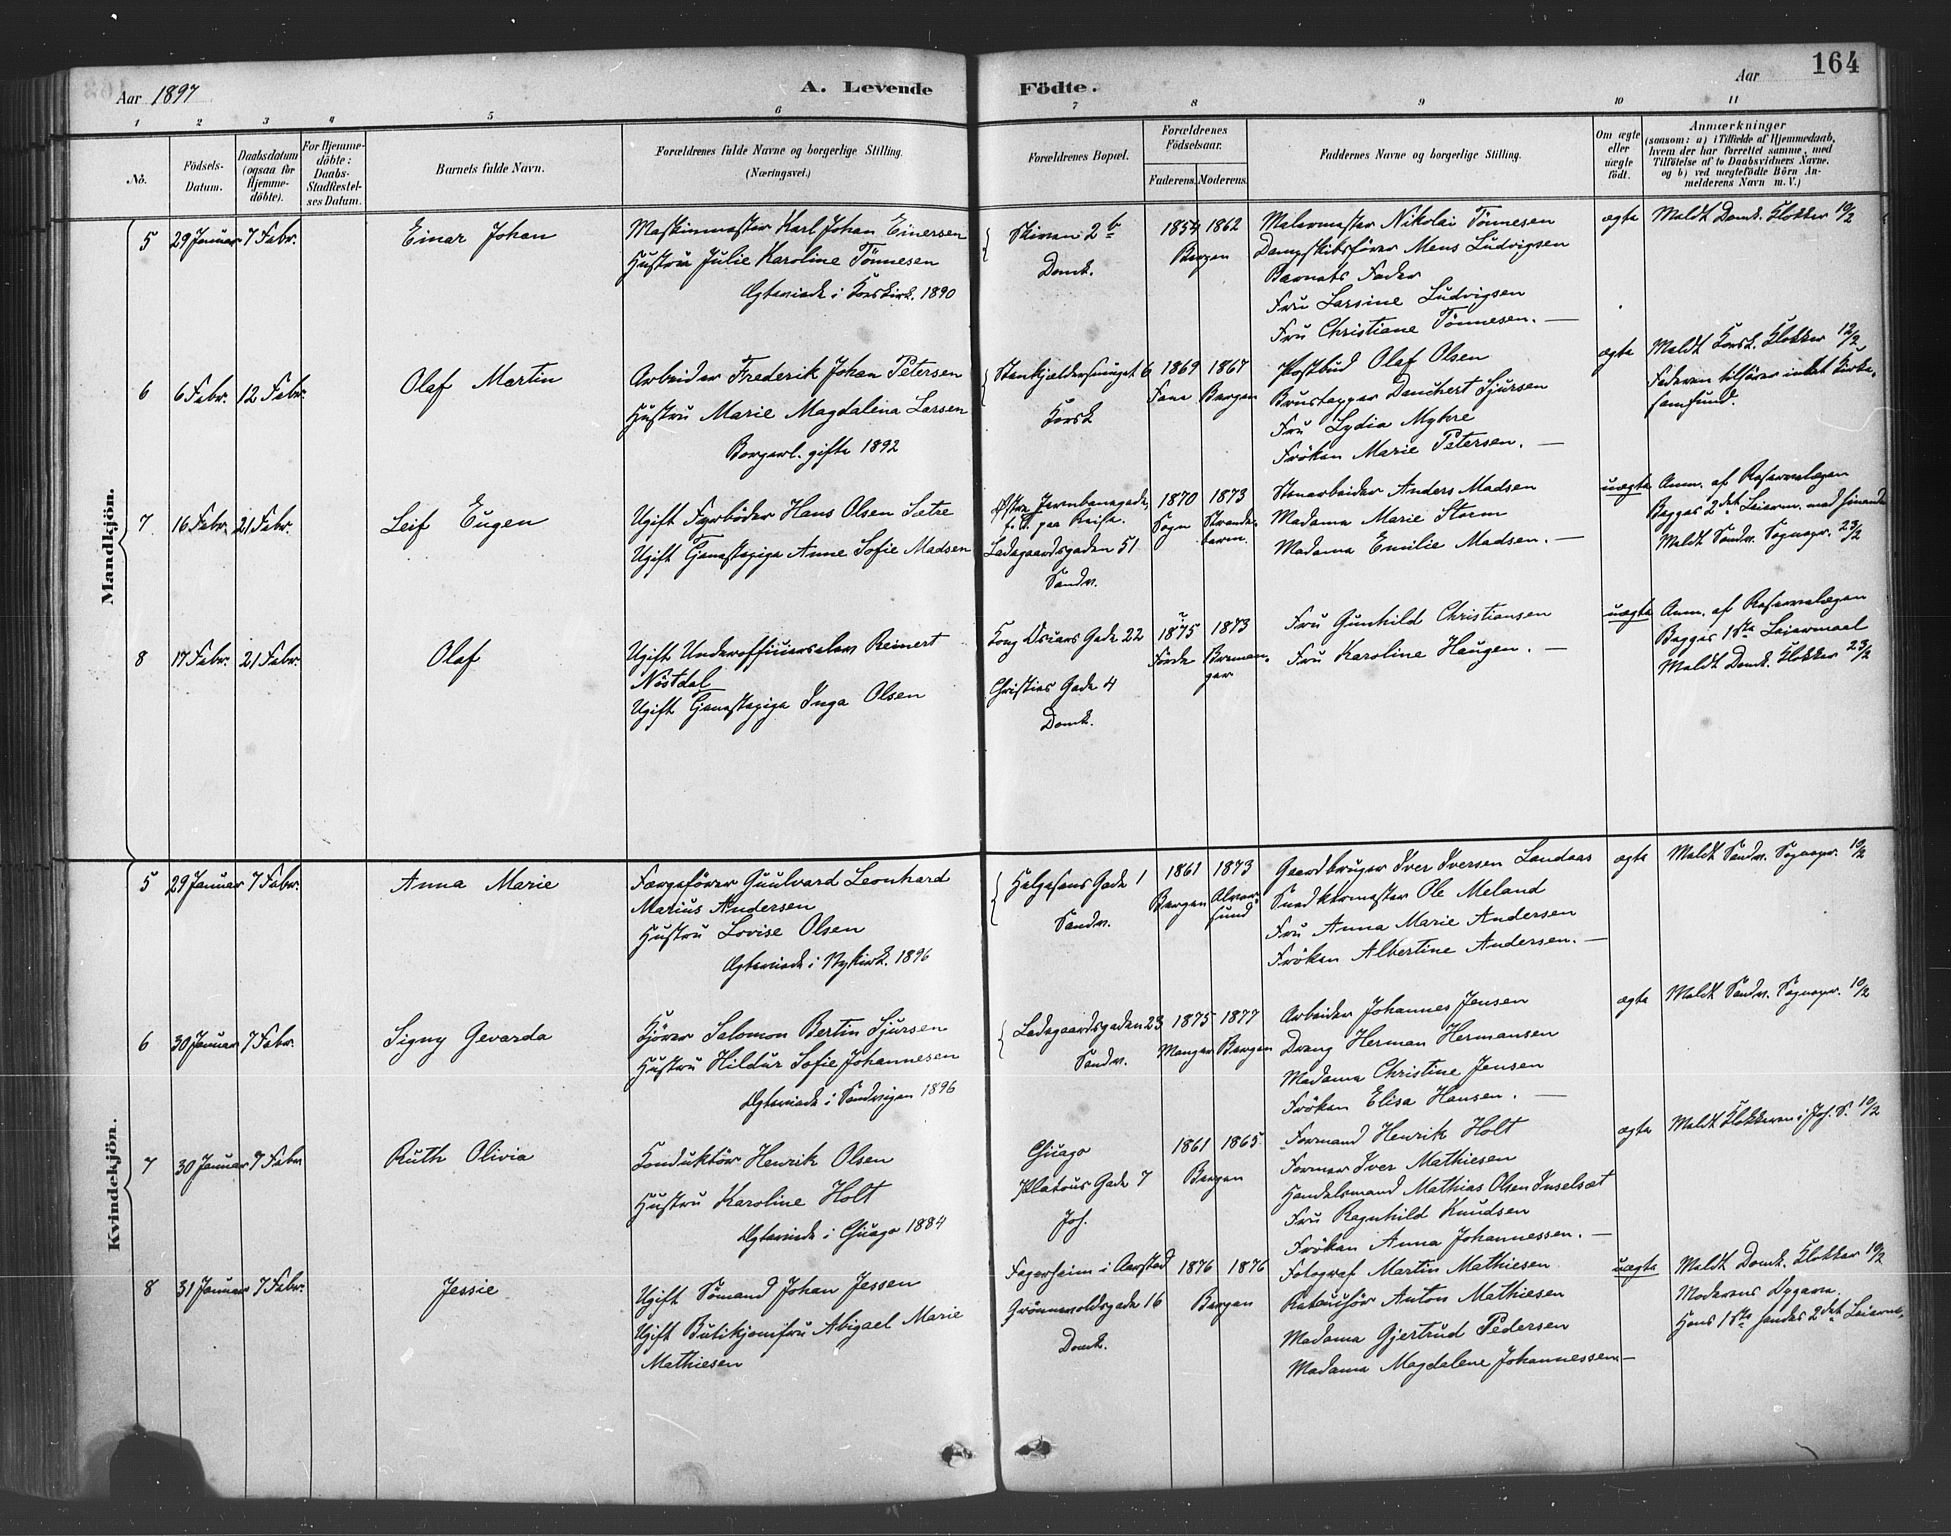 164
Aar 1897
A. Levende Födte.
Aar
1 2 3 4 5 6 7 8 9 10 11
No.
Födsels-Datum.
Daabsdatum (ogsaa for Hjemme-döbte).
For Hjemme-döbte: Daabs-Stadfæstel-ses Datum.
Barnets fulde Navn.
Forældrenes fulde Navne og borgerlige Stilling.
(Næringsvei.)
Forældrenes Bopæl.
Forældrenes Födselsaar.
Faderens. Moderens.
Faddernes Navne og borgerlige Stilling.
Om ægte eller uægte födt.
Anmærkninger
(saasom: a) i Tilfælde af Hjemmedaab, hvem der har forrettet samme, med Tilföielse af to Daabsvidners Navne, og b) ved uægtefödte Börn An-melderens Navn m. V.)
Mandkjön.
5 29 Januar 7 Febr.
Einar Johan
Maskinmester Karl Johan Einersen
Hustru Julie Karoline Tönnesen
Ægteviede i Korskirk. 1890
Skiven 2 b
Domk.
1854 1862
Bergen
Malermester Nikolai Tönnesen
Dampskibsförer Mons Ludvigsen
Barnets Fader
Fru Larsine Ludvigsen
Fru Christiane Tönnesen. —
ægte
Meldt Domk. Klokker 10/2
6 6 Febr. 12 Febr.
Olaf Martin
Arbeider Frederik Johan Petersen
Hustru Marie Magdalena Larsen
Borgerl. gifte 1892
Stenkjeldersmuget 6
Korsk
1869 1867
Fana Bergen
Postbud Olaf Olsen
Brustapper Danchert Sjursen
Fru Lydia Myhre
Fröken Marie Petersen. —
ægte
Meldt Korsk. Klokker 12/2
Faderen tilhörer intet Kirke-
samfund.
7 16 Febr. 21 Febr.
Leif Eugen
Ugift Fyrböder Hans Olsen Sætre
Ugift Tjenestepige Anne Sofie Madsen
Østre Jernbanegade,
f. t. paa Reise.
Ladegaardsgaden 51
Sandv.
1870 1873
Sogn Strande-
barm.
Stenarbeider Anders Madsen
Madame Marie Storm
Madame Emilie Madsen. —
uægte
Anm. af Reservelægen
Begges 2det Leierm. med hinanden
Meldt Sandv. Sognepr. 23/2
8 17 Febr. 21 Febr.
Olaf
Ugift Underofficierselev Reinert
Nöstdal
Ugift Tjenestepige Inga Olsen
Kong Oscars Gade 22
Christies Gade 4
Domk.
1875 1873
Förde Breman-
ger
Fru Gunhild Christiansen
Fru Karoline Haugen. —
uægte
Anm. af Reservelægen
Begges 1ste Leiermaal
Meldt Domk. Klokker 23/2
Kvindekjön.
5 29 Januar 7 Febr.
Anna Marie
Færgeförer Guulvard Leonhard
Marius Andersen
Hustru Lovise Olsen
Ægteviede i Nykirk. 1896
Helgesens Gade 1
Sandv.
1861 1873
Bergen Alver-
sund
Gaardbruger Iver Iversen Landaas
Snedkkermester Ole Meland
Fru Anna Marie Andersen
Fröken Albertine Andersen. —
ægte
Meldt Sandv. Sognepr. 10/2
6 30 Januar 7 Febr.
Signy Gevarda
Kjörer Salomon Bertin Sjursen
Hustru Hildur Sofie Johannesen
Ægteviede i Sandvigen 1896
Ladegaardsgaden 23
Sandv.
1875 1877
Manger Bergen
Arbeider Johannes Jensen
Dreng Herman Hermansen
Madame Christine Jensen
Fröken Elisa Hansen. —
ægte
Meldt Sandv. Sognepr. 10/2
7 30 Januar 7 Febr
Ruth Olivia
Konduktör Henrik Olsen
Hustru Karoline Holt
Ægteviede i Chicago 1884
Chicago
Platous Gade 7
Joh.
1861 1865
Bergen
Formand Henrik Holt
Former Iver Mathiesen
Handelsmand Mathias Olsen Inselsæt
Fru Ragnhild Knudsen
Fröken Anna Johannessen. —
ægte
Meldt Klokkeren i Joh. S. 10/2
8 31 Januar 7 Febr.
Jessie
Ugift Sömand Johan Jessen
Ugift Butikjomfru Abigael Marie
Mathiesen
Fagerheim i Aarstad
Grönnevoldsgade 16
Domk.
1876 1876
Bergen
Fotograf Martin Mathiesen
Retouchör Anton Mathiesen
Madame Gjertrud Pedersen
Madame Magdalene Johannessen —
uægte
Meldt Domk. Klokker 10/2
Moderens Opgave.
Hans 1ste hendes 2det Leierm.